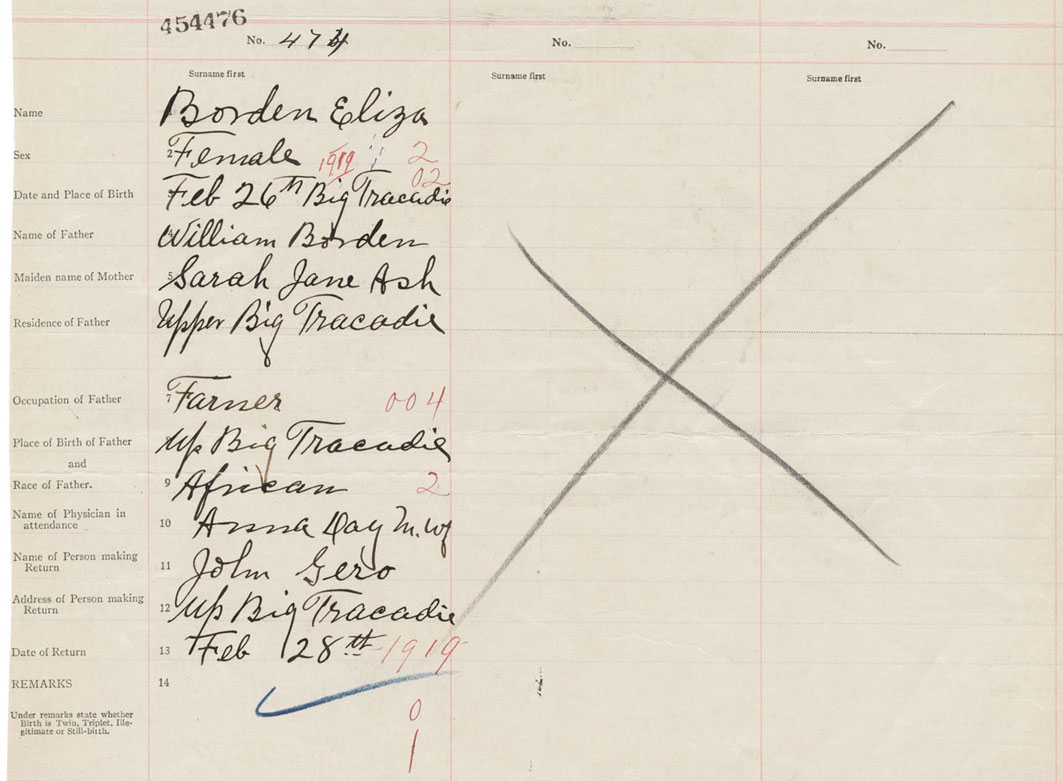 454476
No. 474 No. No.
Surname first Surname first Surname first
Name Borden Eliza
Sex 2 Female 1919 2
02
Date and Place of Birth Feb 26th Big Tracadie
Name of Father William Borden
Maiden name of Mother 5 Sarah Jane Ash
Residence of Father Upper Big Tracadie
Occupation of Father 7 Farner 004
Place of Birth of Father Up Big Tracadie
and
Race of Father. 9 African 2
Name of Physician in
attendance 10 Anna Day M.W
Name of Person making
Return 11 John Gero
Address of Person making
Return 12 Up Big Tracadie
Date of Return 13 Feb 28th 1919
REMARKS 14
Under remarks state whether
Birth is Twin, Triplet, Ille-
gitimate or Still-birth.
0
1